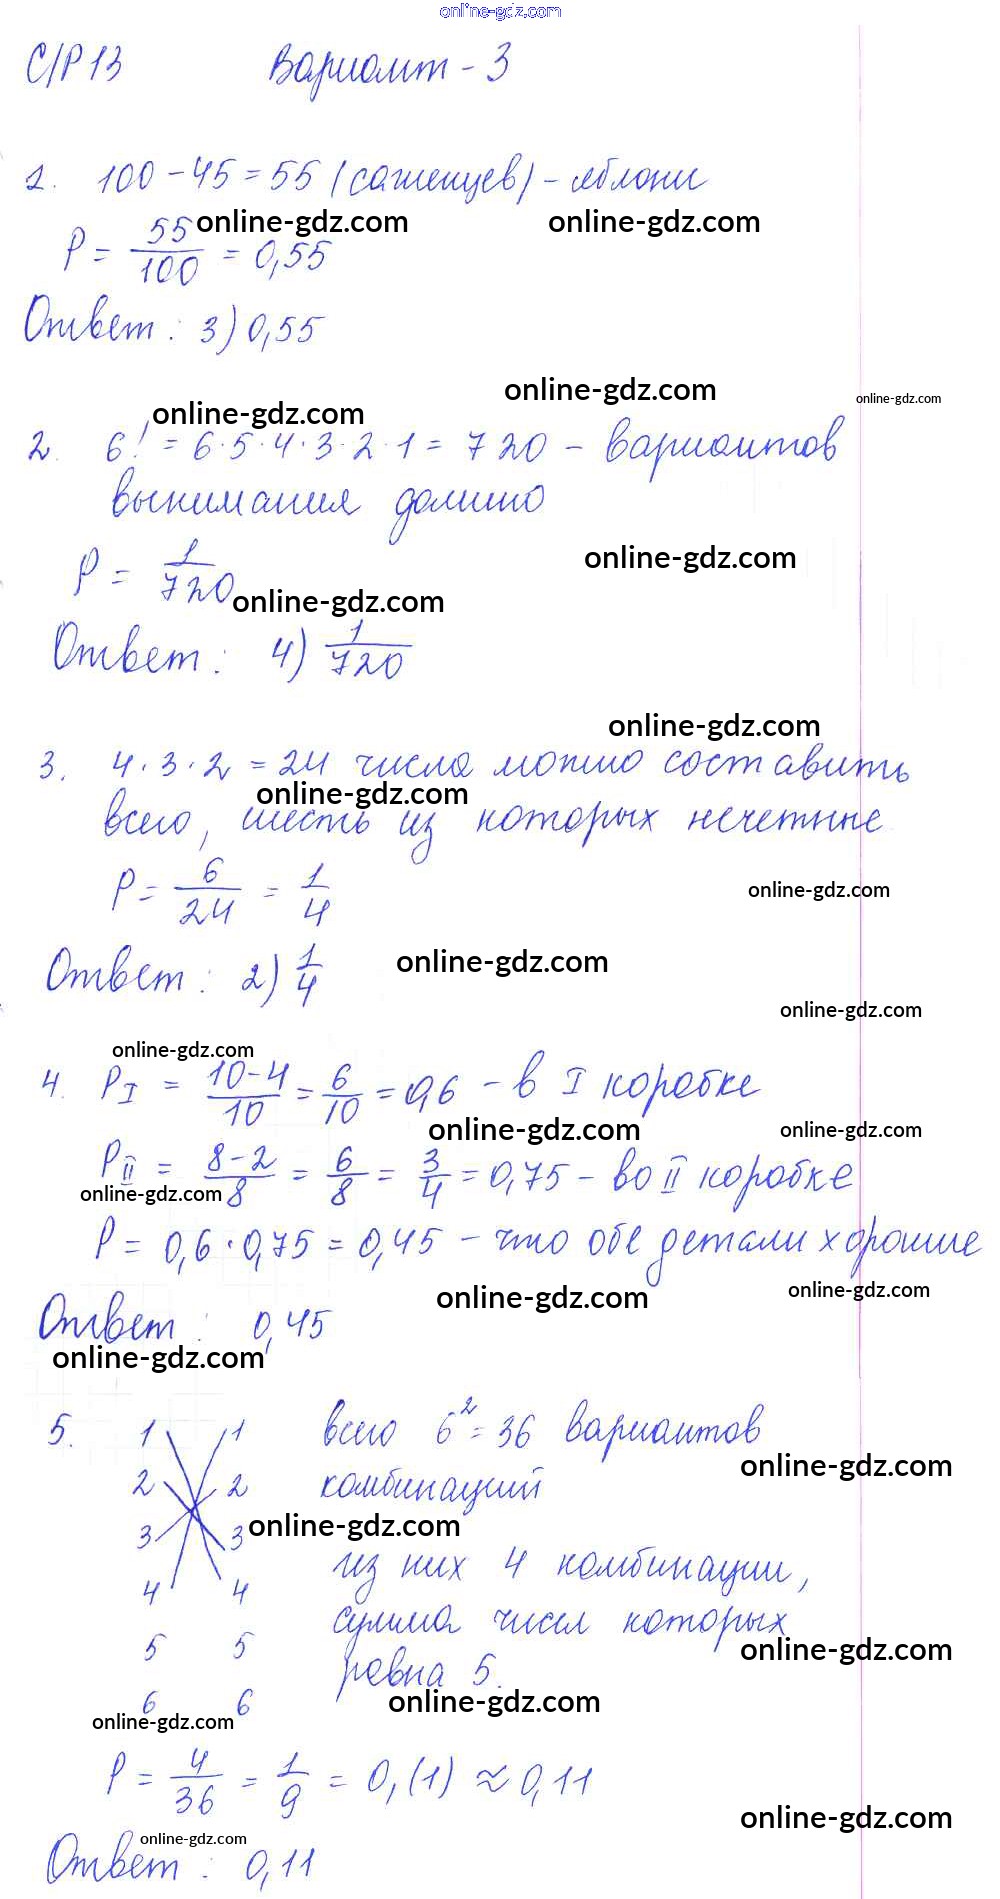 online-gdz.com
С/Р 13 Вариант - 3
1. 100 - 45 = 55 (саженцев) - яблони
online-gdz.com online-gdz.com
P = 55/100 = 0,55
Ответ: 3) 0,55
online-gdz.com
online-gdz.com
online-gdz.com
2. 6! = 6·5·4·3·2·1 = 720 - вариантов
вынимания домино
online-gdz.com
P = 1/720
online-gdz.com
Ответ: 4) 1/720
online-gdz.com
3. 4·3·2 = 24 числа можно составить
online-gdz.com
всего, шесть из которых нечетные
P = 6/24 = 1/4
online-gdz.com
online-gdz.com
Ответ: 2) 1/4
online-gdz.com
online-gdz.com
4. P I = 10-4/10 = 6/10 = 0,6 - в I коробке
online-gdz.com
online-gdz.com
P II = 8-2/8 = 6/8 = 3/4 = 0,75 - во II коробке
online-gdz.com
P = 0,6·0,75 = 0,45 - что обе детали хорошие
online-gdz.com
online-gdz.com
Ответ: 0,45
online-gdz.com
5. 1 1 всего 6² = 36 вариантов
online-gdz.com
2 2 комбинаций
online-gdz.com
3 3
из них 4 комбинации,
4 4
сумма чисел которых
online-gdz.com
5 5
равна 5.
online-gdz.com
6 6
online-gdz.com
P = 4/36 = 1/9 = 0,(1) ≈ 0,11
online-gdz.com
online-gdz.com
Ответ: 0,11